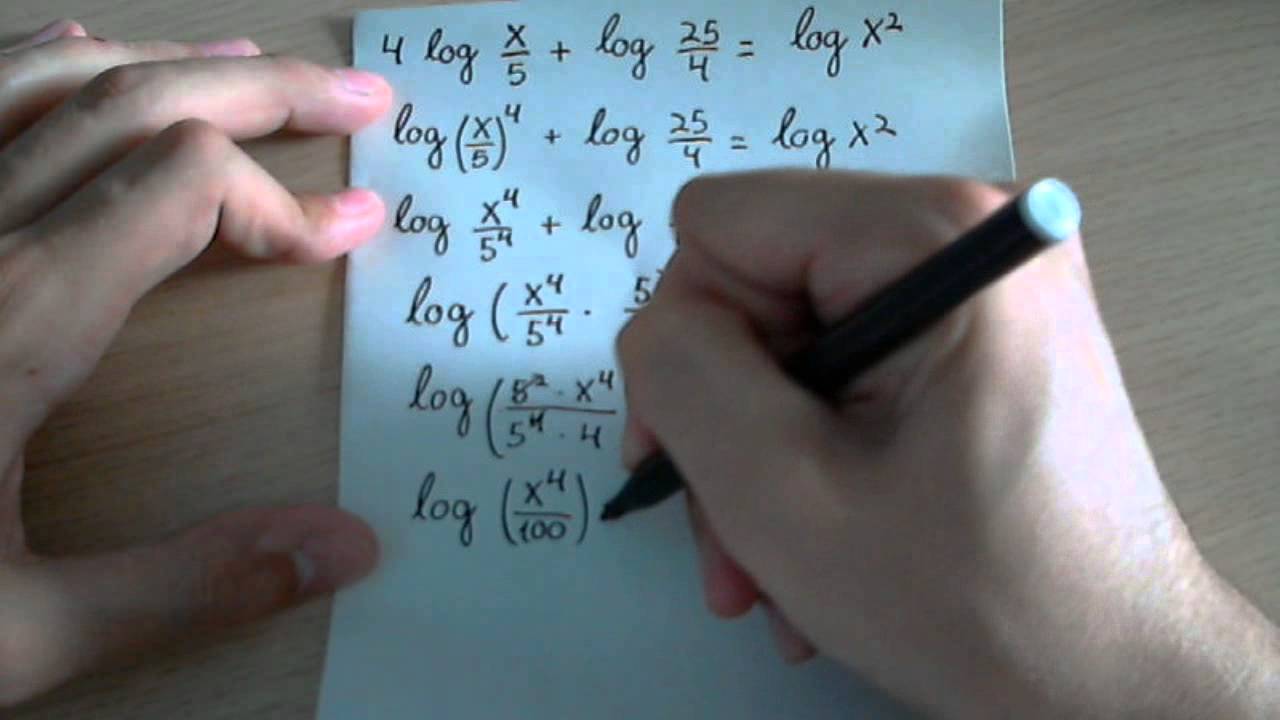 4 log x/5 + log 25/4 = log x²
log (x/5)⁴ + log 25/4 = log x²
log x⁴/5⁴ + log
log (x⁴/5⁴ · 5
log (5² · x⁴/5⁴ · 4
log (x⁴/100)